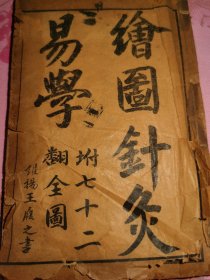 繪圖針灸
易學
坿七十二
翻全圖
維揚王廕之書